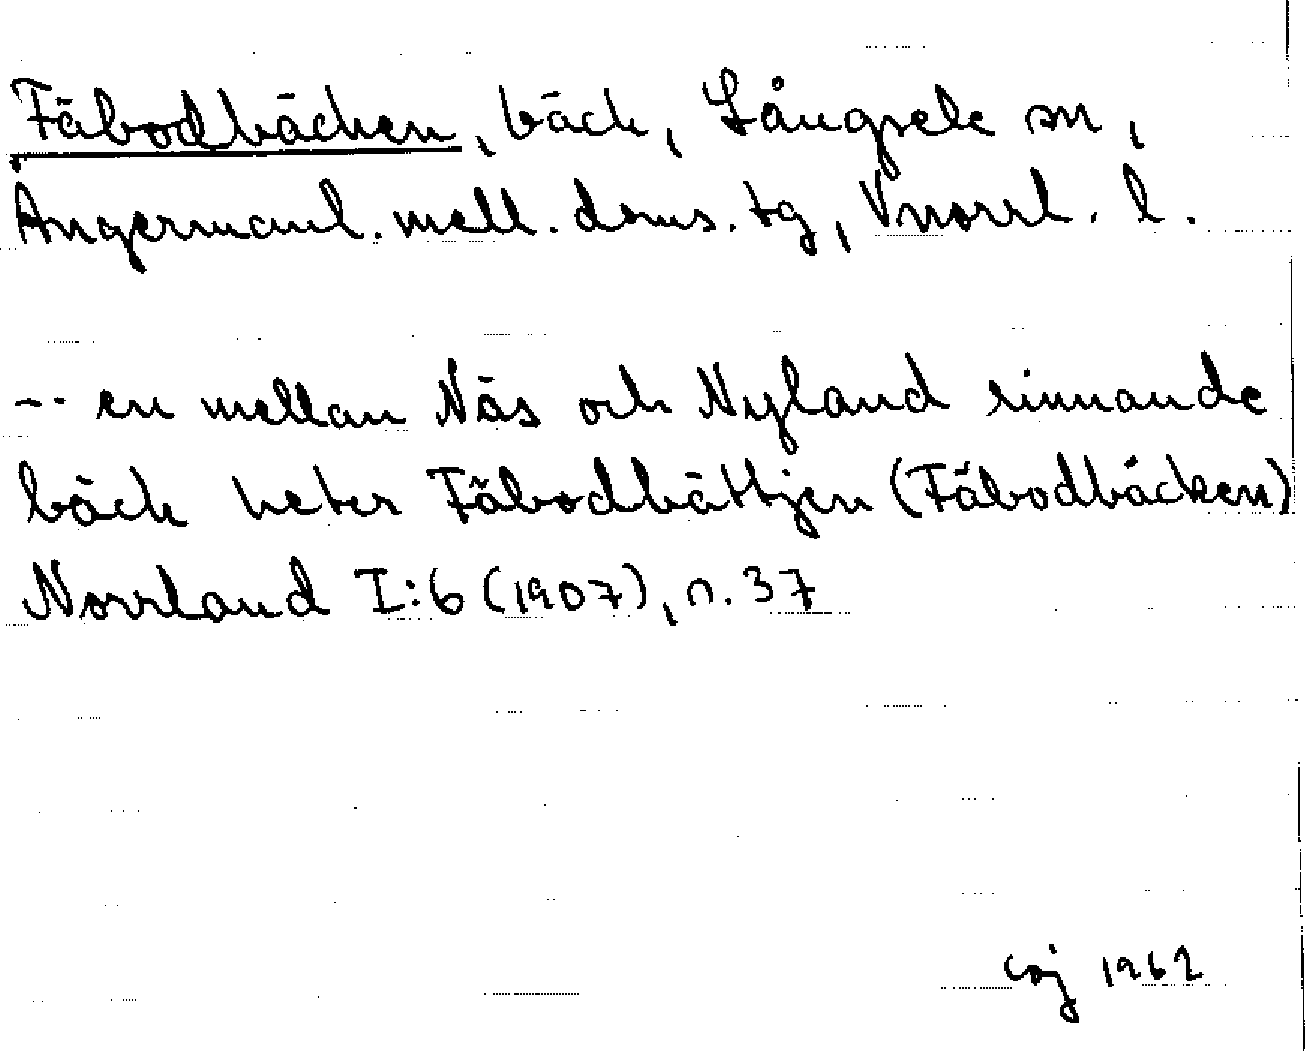 Fäbodbäcken, bäck, Långsele sn,
Ångermanl. mell. doms. tg, Vnorrl. l.
-- en mellan Näs och Nyland rinnande
bäck heter Fäbodbättjen (Fäbodbäcken)
Norrland I:6 (1907), s. 37
1962